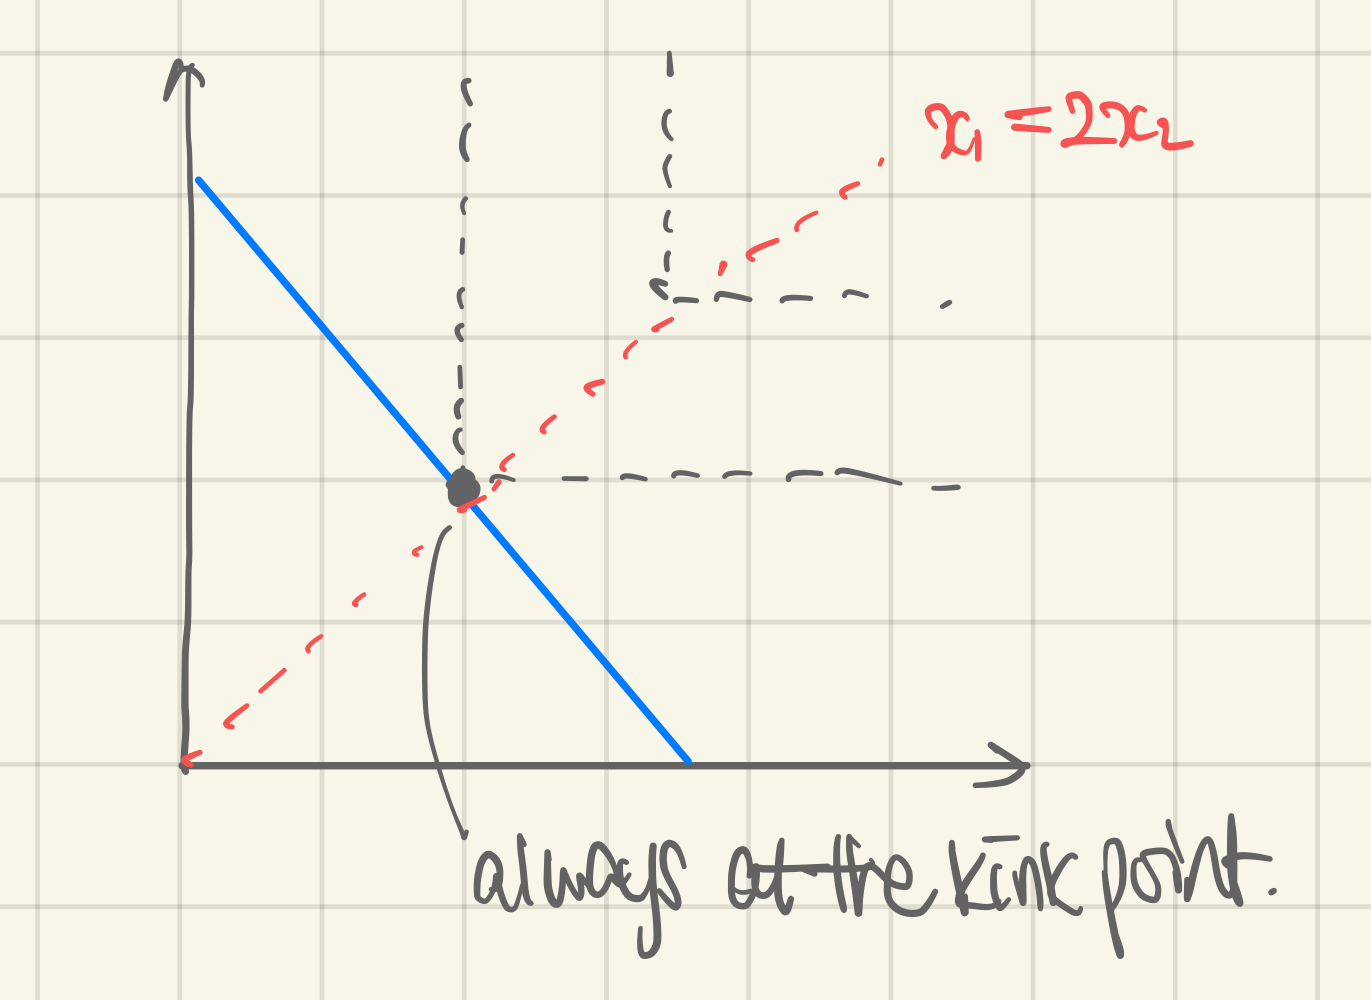 x₁ = 2x₂
always at the kink point.